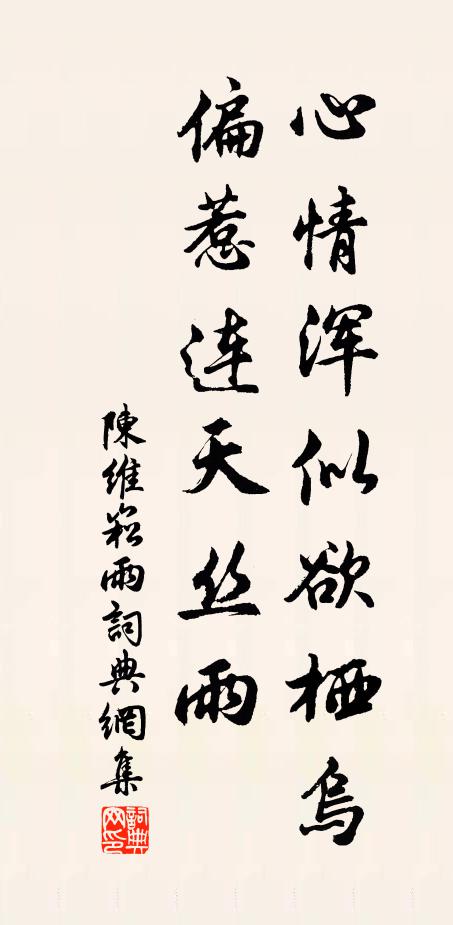 心情浑似欲栖乌
偏惹连天丝雨
陳維崧雨詞典網集
詞典网印